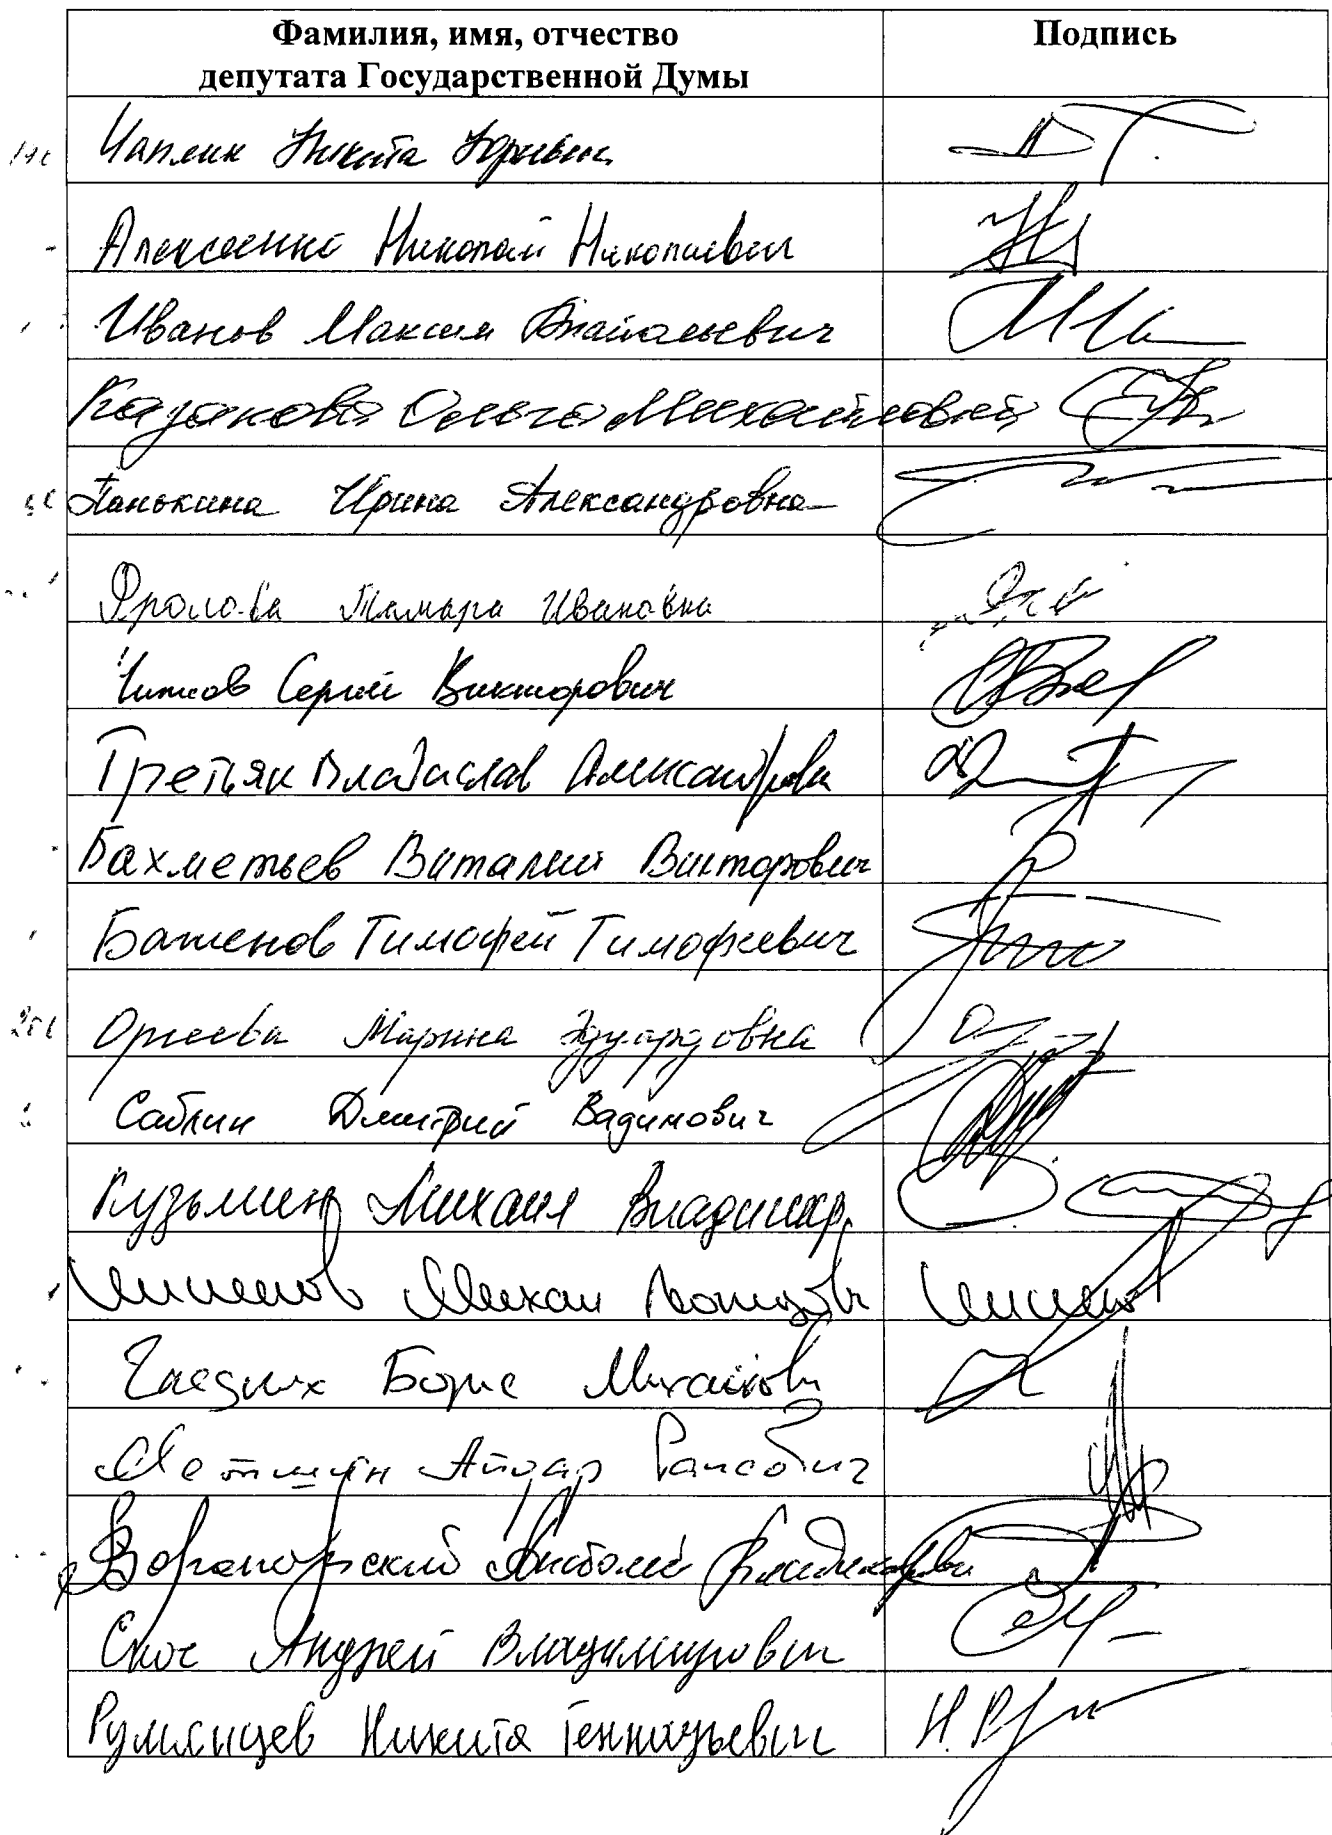 Фамилия, имя, отчество
депутата Государственной Думы
Подпись
Чаплин Никита Юрьевич
Алексеенко Николай Николаевич
Иванов Максим Витальевич
Казакова Ольга Михайловна
Панькина Ирина Александровна
Фролова Тамара Ивановна
Чижов Сергей Викторович
Третьяк Владислав Александрович
Бахметьев Виталий Викторович
Баженов Тимофей Тимофеевич
Оргеева Марина Эдуардовна
Саблин Дмитрий Вадимович
Кузьмин Михаил Владимир.
Михаил Леонтьевич
Гладких Борис Михайлович
Метшин Айдар Раисович
Вороновский Анатолий Владимирович
Скоч Андрей Владимирович
Румянцев Никита Геннадьевич
Н. Р